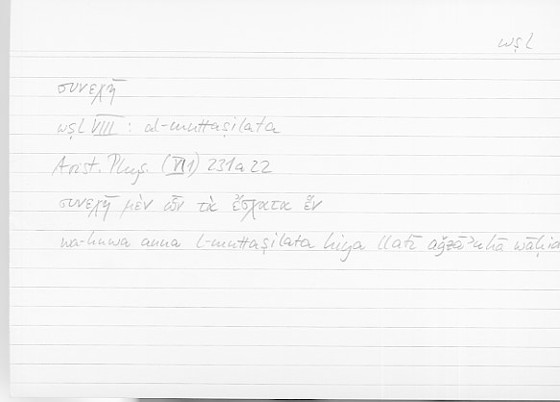 wṣl
συνεχῆ
wṣl VIII : al-muttaṣilata
Arist. Phys. (VI 1) 231a22
συνεχῆ μὲν ὧν τὰ ἔσχατα ἕν
wa-huwa anna l-muttaṣilata hiya llatī aǧzāʾuhā wāḥid